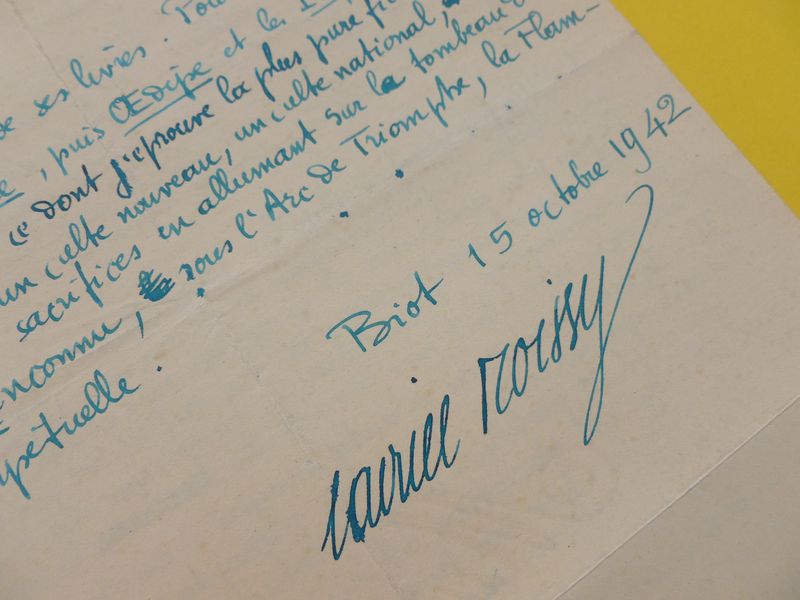 de ses livres. Pour
, puis Œdipe et les
ce dont j'éprouve la plus pure fie
un culte nouveau, un culte national,
sacrifices en allumant sur le tombeau
inconnu, sous l'Arc de Triomphe, la Flam-
pétuelle.
Biot 15 octobre 1942
Gabriel Boissy